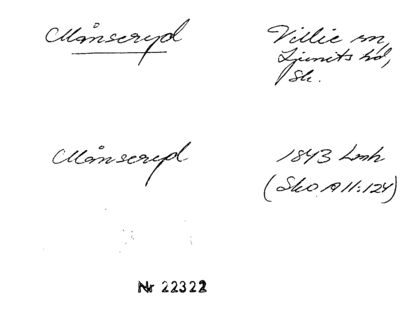 Månseryd
Villie sn,
Ljunits hd,
Sk.
Månseryd
1843 Lmk
(SkO A II:124)
Nr 22322